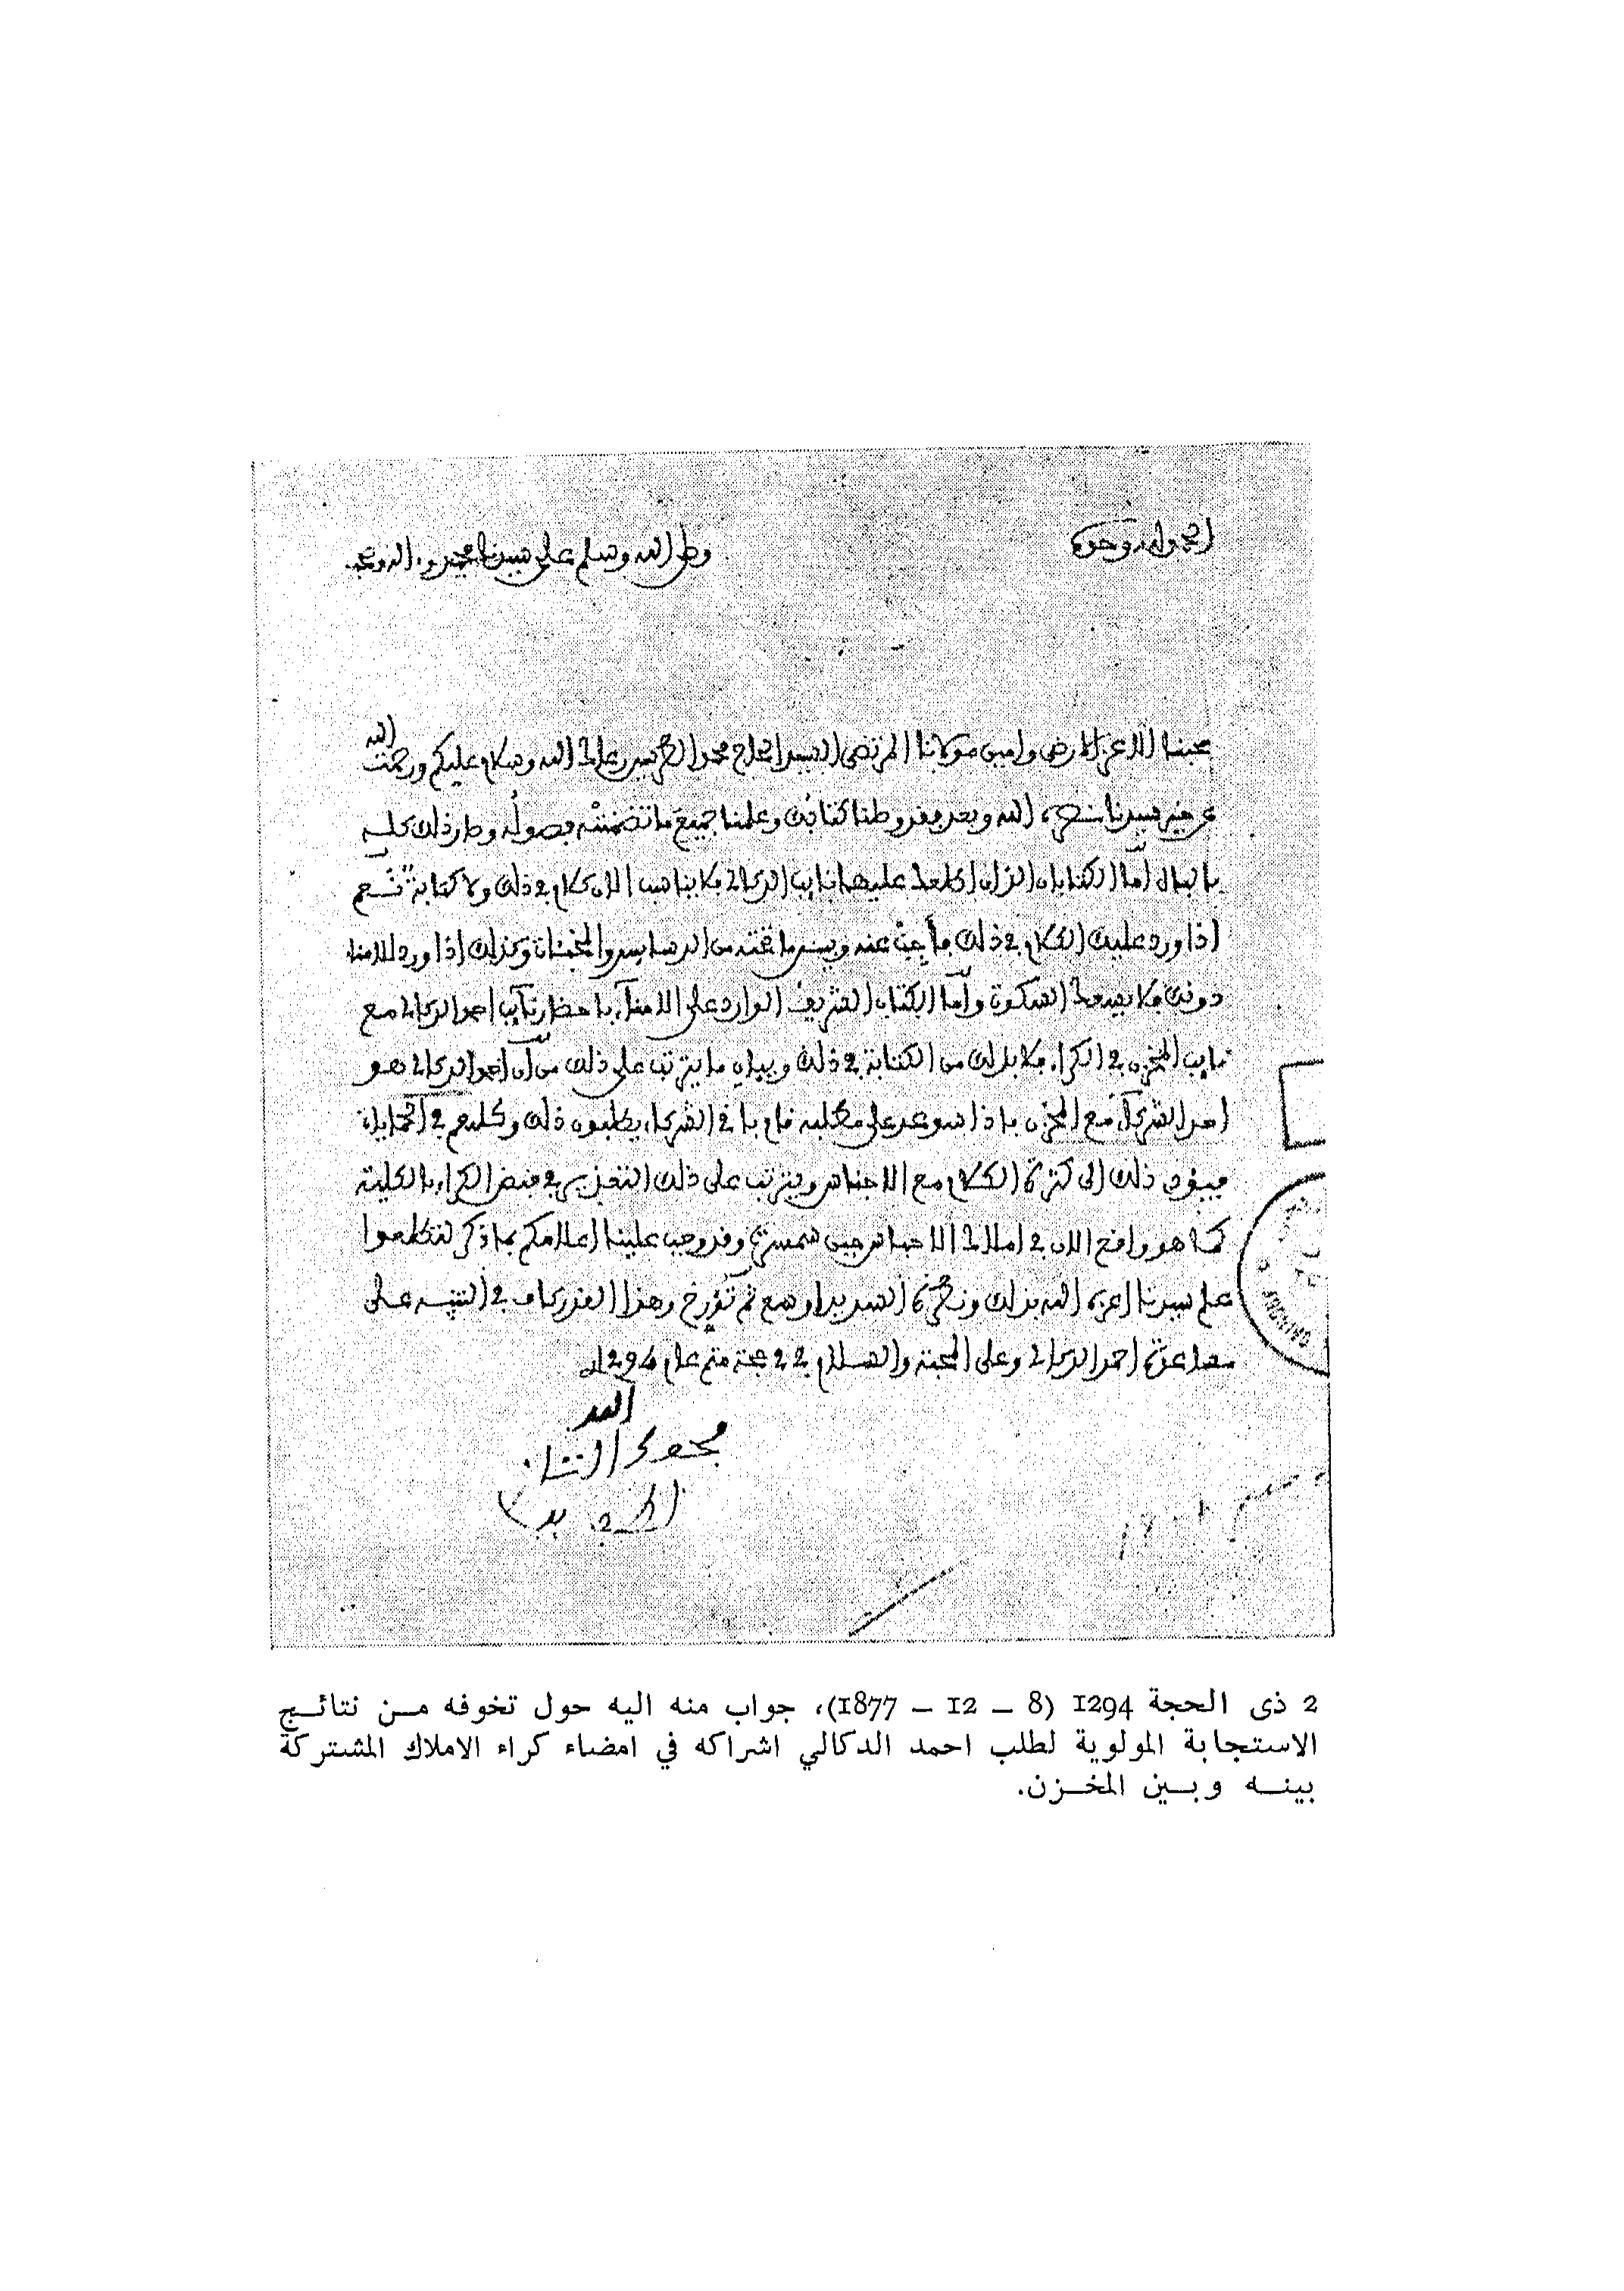 الحمد لله وحده
وصلى الله وسلم على سيدنا محمد وءاله وصحبه
محبنا الاعز الارضى وامين مولانا المرتضى السيد الحاج محمد رعاك الله وسلام عليكم ورحمت الله
عن خير سيدنا نصره الله وبعد فقد وصلنا كتابك وعلمنا جميع ما تضمنته فصوله وصار ذلك كله
بالبال أما الكتابان اللذان اطلعك عليهما نايب الدكالي فلا يناسب الان كلام في ذلك ولا كتابة نعم
اذا ورد عليك الكلام في ذلك فأجب عنه وبين ما تحته من الدسايس والمخبئات وكذلك اذا ورد للامناء
دونك فلا يسعك السكوت وأما الكتاب الشريف الوارد على الامناء باحضار نايب احمد الدكالي مع
نايب المخزن في الكراء فلا بد لك من الكتابة في ذلك وبيان ما يترتب على ذلك من أن احمد الدكالي هو
احد الشركاء مع المخزن فاذا سوعد على مطلبه قام باقي الشركاء يطلبون ذلك وكلهم في الحمايات
فيئول ذلك الى كثرة الكلام مع الاجناس ويترتب على ذلك التعذير في قبض الكراء بالكلية
كما هو واقع الان في املاك الاحباس وقد وجب علينا اعلامكم بما ذكر لتطلعوا
علم سيدنا اعزه الله بذلك وهذا القدر كاف في التنبيه على
مساعدة احمد الدكالي وعلى المحبة والسلام في 2 حجة متم عام 1294
محمد
2 ذى الحجة 1294 (8 – 12 – 1877)، جواب منه اليه حول تخوفه مــن نتائــج
الاستجابة المولوية لطلب احمد الدكالي اشراكه في امضاء كراء الاملاك المشتركة
بينــه وبــين المخــزن.